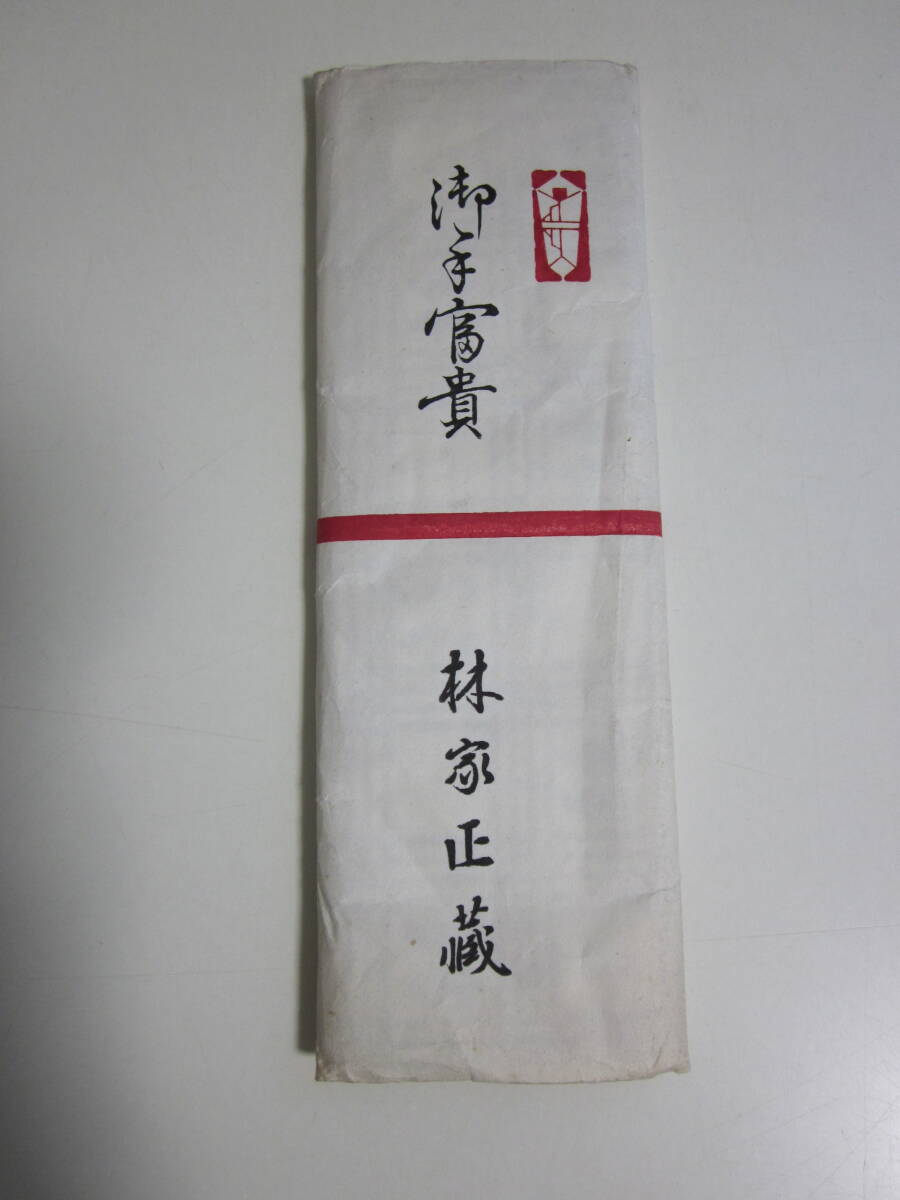 御手富貴
林家正蔵